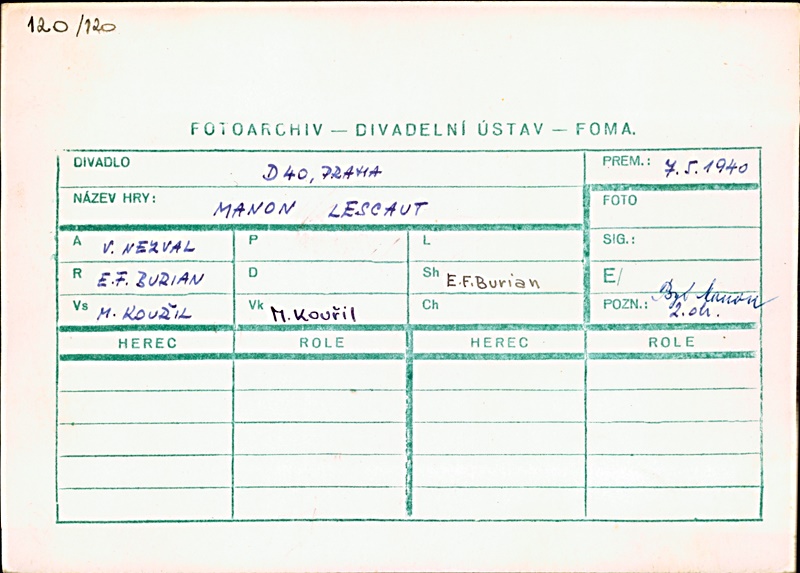 120/120
FOTOARCHIV — DIVADELNÍ ÚSTAV — FOMA.
DIVADLO D40, PRAHA PREM.: 7.5.1940
NÁZEV HRY: MANON LESCAUT FOTO
A V. NEZVAL P L SIG.:
R E.F. BURIAN D Sh E.F.Burian E/
Vs M. KOUŘIL Vk M.Kouřil Ch POZN.: Byt Manon
2.obr.
HEREC ROLE HEREC ROLE